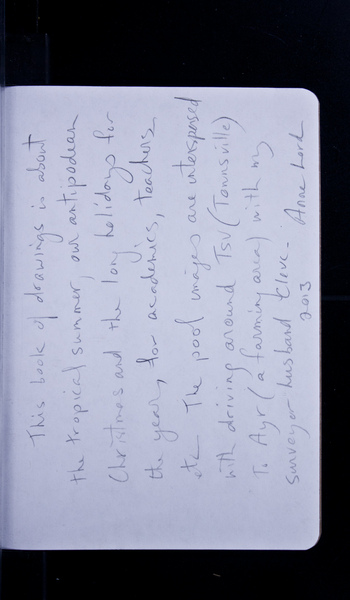 This book of drawings is about
the tropical summer, our antipodean
Christmas and the long holidays for
the year, for academics, teachers
etc The pool images are intersposed
with driving around Tsv (Townsville)
To Ayr (a farming area) with my
surveyor husband Clive. Anne Lord
2013